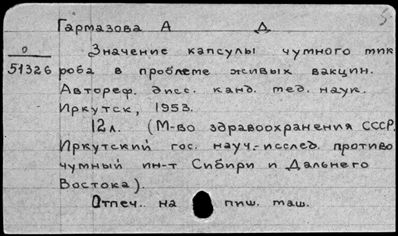 Гармазова А Д
0
51326
Значение капсулы чумного мик
роба в проблеме живых вакцин.
Автореф. дисс. канд. мед. наук.
Иркутск, 1953.
12л. (М-во здравоохранения СССР.
Иркутский гос. науч.-исслед. противо
чумный ин-т Сибири и Дальнего
Востока).
Отпеч. на пиш. маш.